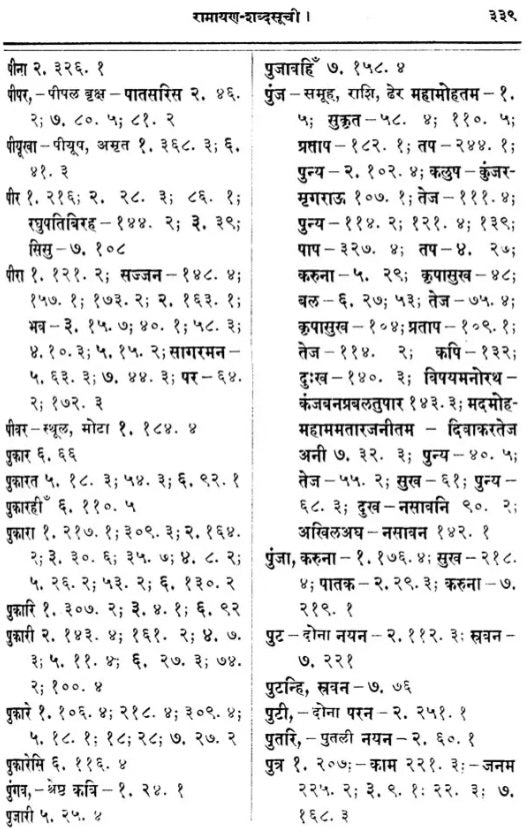 रामायण-शब्दसूची ।
३३९
पीना २. ३२६. १
पीपर,-पीपल बृक्ष-पातसरिस २. ४६.
२; ७. ८०. ५; ८१. २
पीयूखा-पीयूप, अमृत १. ३६८. ३; ६.
४१. ३
पीर १. २१६; २. २८. ३; ८६. १;
रघुपतिबिरह-१४४. २; ३. ३९;
सिसु-७. १०८
पीरा १. १२१. २; सज्जन-१४८. ४;
१५७. १; १७३. २; २. १६३. १;
भव-३. १५. ७; ४०. १; ५८. ३;
४. १०. ३; ५. १५. २; सागरमन-
५. ६३. ३; ७. ४४. ३; पर-६४.
२; १७२. ३
पीवर-स्थूल, मोटा १. १८४. ४
पुकार ६. ६६
पुकारत ५. १८. ३; ५४. ३; ६. ९२. १
पुकारहीँ ६. ११०. ५
पुकारा १. २१७. १; ३०९. ३; २. १६४.
२; ३. ३०. ६; ३५. ७; ४. ८. २;
५. २६. २; ५३. २; ६. १३०. २
पुकारि १. ३०७. २; ३. ४. १; ६. ९२
पुकारी २. १४३. ४; १६१. २; ४. ७.
३; ५. ११. ४; ६. २७. ३; ७४.
२; १००. ४
पुकारे १. १०६. ४; २१८. ४; ३०९. ४;
५. १८. १; १८; २८; ७. २७. २
पुकारेसि ६. ११६. ४
पुंगव,-श्रेष्ठ कवि-१. २४. १
पुजारी ५. २५. ४
पुजावहिँ ७. १५८. ४
पुंज-समूह, राशि, ढेर महामोहतम-१.
५; सुकृत-५८. ४; ११०. ५;
प्रताप-१८२. १; तप-२४४. १;
पुन्य-२. १०२. ४; कलुप-कुंजर-
मृगराऊ १०७. १; तेज-१११. ४;
पुन्य-११४. २; १२१. ४; १३९;
पाप-३२७. ४; तप-४. २७;
करुना-५. २९; कृपासुख-४८;
बल-६. २७; ५३; तेज-७५. ४;
कृपासुख-१०४; प्रताप-१०९. १;
तेज-११४. २; कपि-१३२;
दुःख-१४०. ३; विषयमनोरथ-
कंजबनप्रबलतुपार १४३. ३; मदमोह-
महाममतारजनीतम-दिवाकरतेज
अनी ७. ३२. ३; पुन्य-४०. ५;
तेज-५५. २; सुख-६१; पुन्य-
६८. ३; दुख-नसावनि ९०. २;
अखिलअघ-नसावन १४२. १
पुंजा, करुना-१. १७६. ४; सुख-२१८.
४; पातक-२. २९. ३; करुना-७.
२१९. १
पुट-दोना नयन-२. ११२. ३; स्रवन-
७. २२१
पुटन्हि, स्रवन-७. ७६
पुटी,-दोना परन-२. २५१. १
पुतरि,-पुतली नयन-२. ६०. १
पुत्र १. २०७;-काम २२१. ३;-जनम
२२५. २; ३. ९. १; २२. ३; ७.
१६८. ३